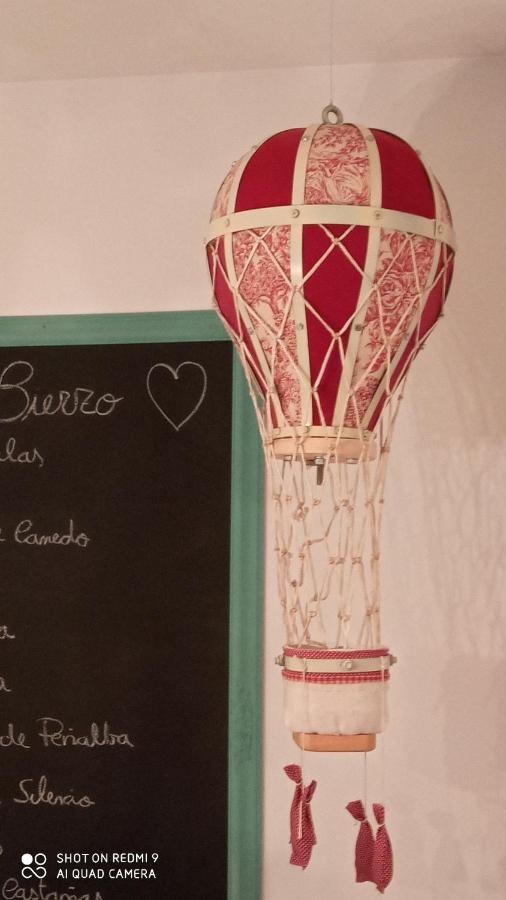 Bierzo
las
Canedo
a
a
de Peñalba
Silencio
Castañas
SHOT ON REDMI 9
AI QUAD CAMERA